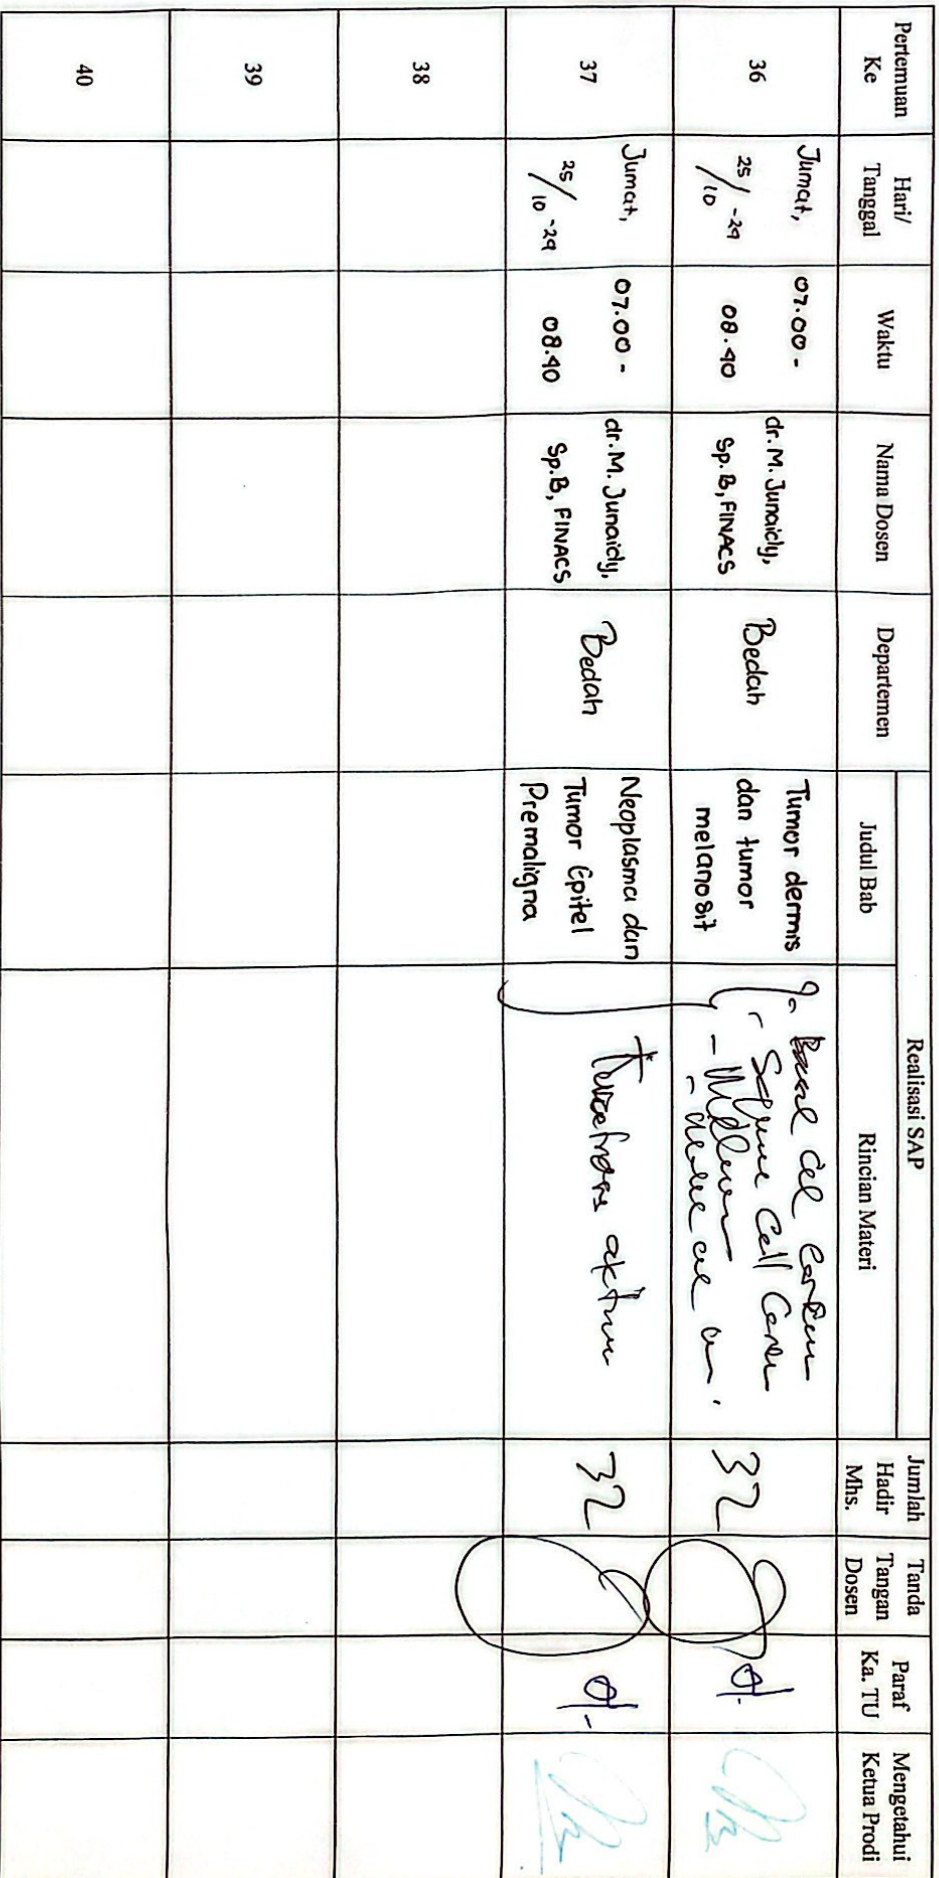 Pertemuan Ke
Hari/ Tanggal
Waktu
Nama Dosen
Departemen
Realisasi SAP
Judul Bab
Rincian Materi
Jumlah Hadir Mhs.
Tanda Tangan Dosen
Paraf Ka. TU
Mengetahui Ketua Prodi
36
Jumat,
25/10 -24
07.00 -
08.40
dr. M. Junaidy,
Sp. B, FINACS
Bedah
Tumor dermis
dan tumor
melanosit
- Basal Cel
- Cell
32
37
Jumat,
25/10 -24
07.00 -
08.40
dr. M. Junaidy,
Sp. B, FINACS
Bedah
Neoplasma dan
Tumor Epitel
Premaligna
32
38
39
40